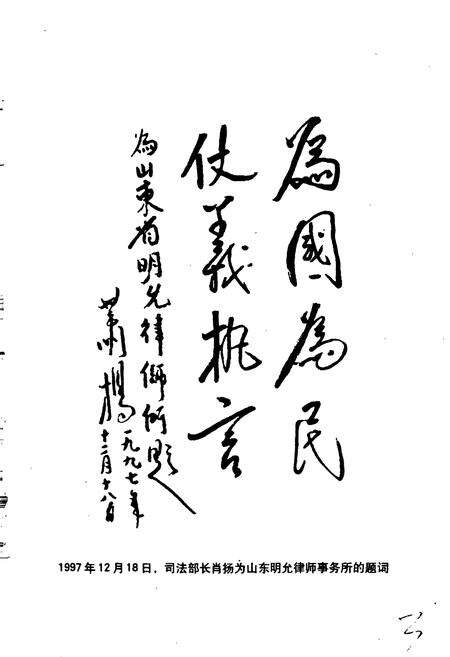 為國為民
仗義执言
為山東省明允律師所題
蕭揚 一九九七年
十二月十八日
1997年12月18日，司法部长肖扬为山东明允律师事务所的题词